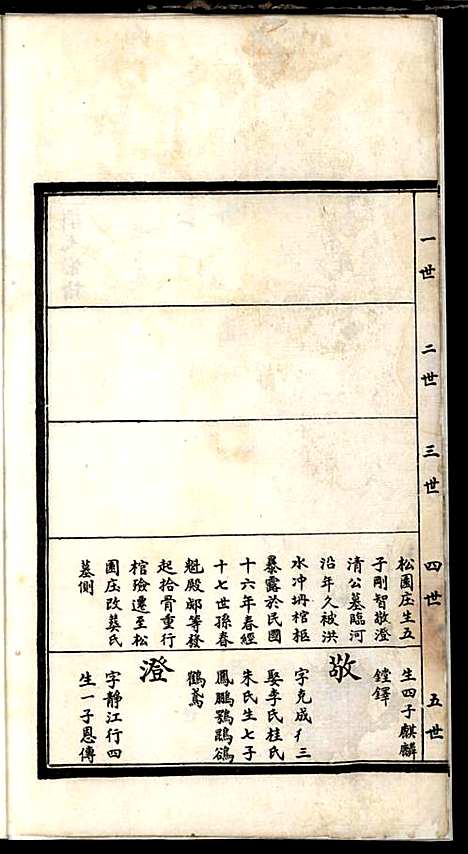 一世
二世
三世
四世
松園庄生五
子剛智敬澄
清公墓臨河
沿年久被洪
水冲坍棺柩
暴露於民國
十六年春經
十七世孫春
魁殿邮等發
起拾骨重行
棺殮遷至松
園庄改葬氏
墓側
五世
生四子麒麟
鏜鐸
敬
字克成行三
娶李氏桂氏
朱氏生七子
鳳鵬鶚鵾鵒
鶴鳶
澄
字靜江行四
生一子恩傳